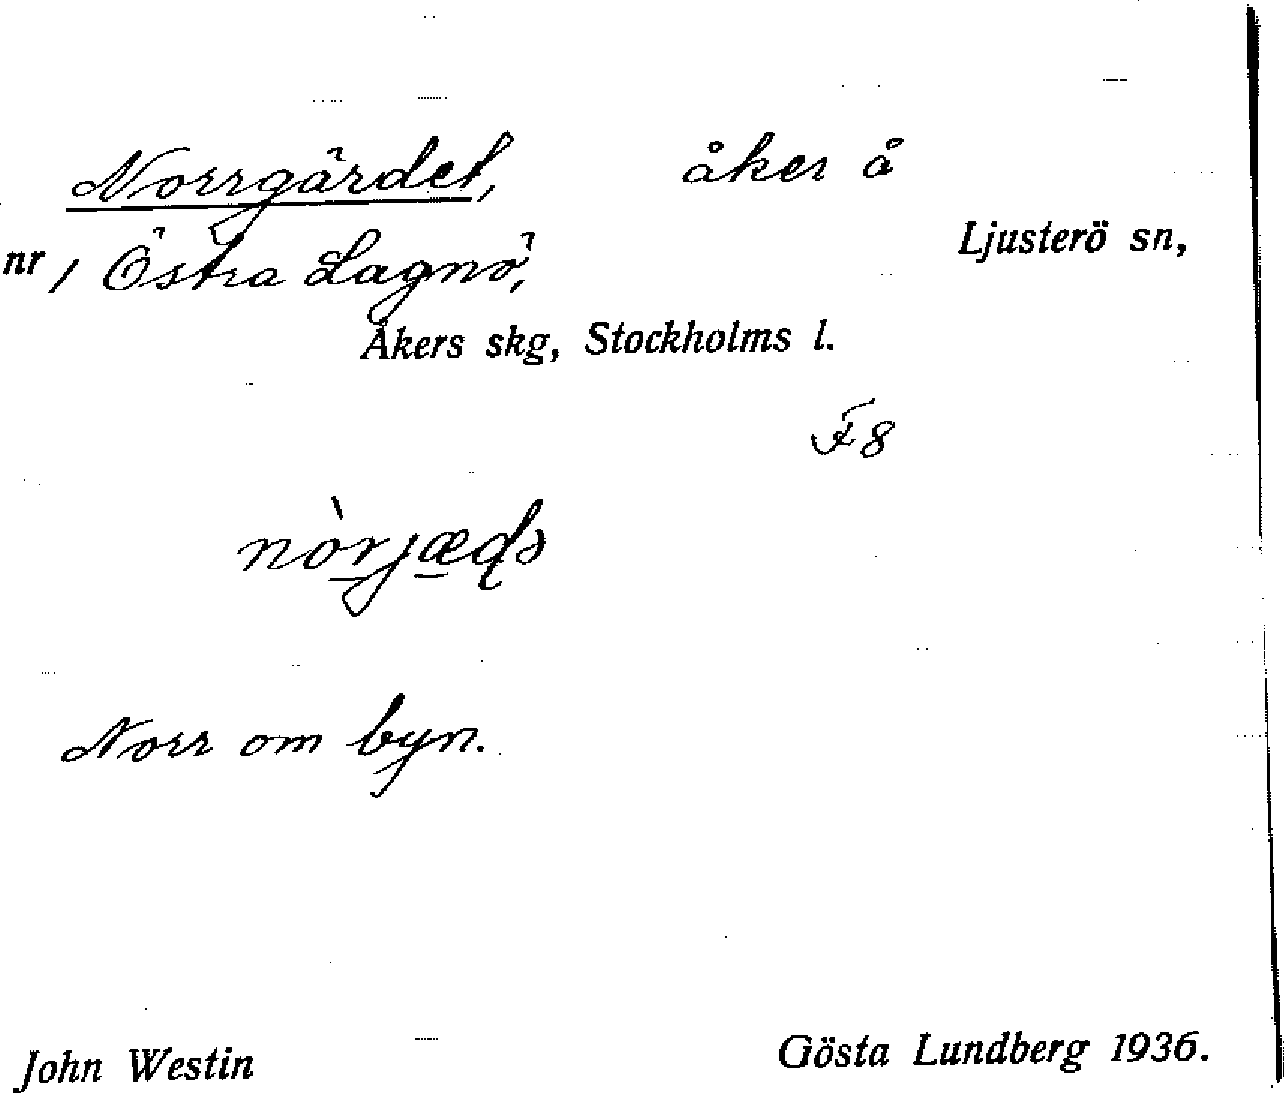 Norrgärdet, åker å
nr 1 Östra Lagnö, Ljusterö sn,
Åkers skg, Stockholms l.
F8
nòrjæḍə
Norr om byn.
John Westin Gösta Lundberg 1936.